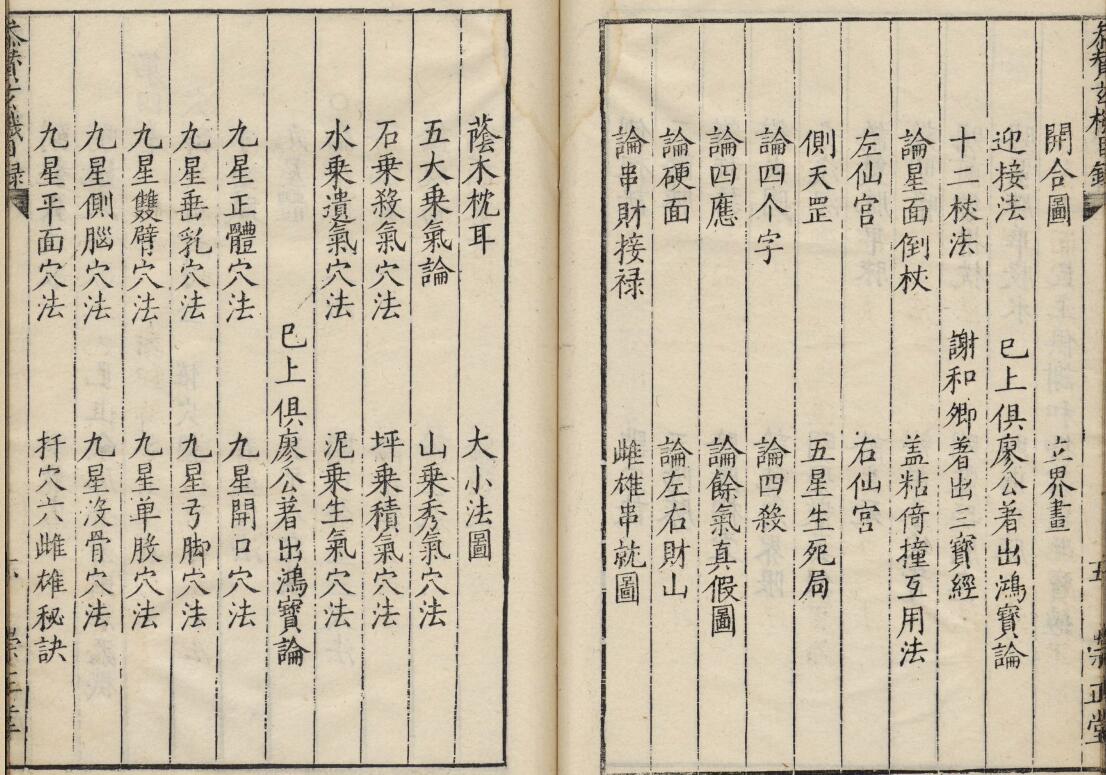 玄機目錄 五 崇正堂
開合圖 立界畫
迎接法 巳上俱廖公著出鴻寶論
十二杖法 謝和卿著出三寶經
論星面倒杖 盖粘倚撞互用法
左仙宮 右仙宮
側天罡 五星生死局
論四个字 論四殺
論四應 論餘氣真假圖
論硬面 論左右財山
論串財接禄 雌雄串就圖
蔭木枕耳 大小法圖
五大乘氣論 山乘秀氣穴法
石乘殺氣穴法 坪乘積氣穴法
水乘遺氣穴法 泥乘生氣穴法
巳上俱廖公著出鴻寶論
九星正體穴法 九星開口穴法
九星垂乳穴法 九星弓脚穴法
九星雙臂穴法 九星单股穴法
九星側腦穴法 九星没骨穴法
九星平面穴法 扦穴六雌雄秘訣